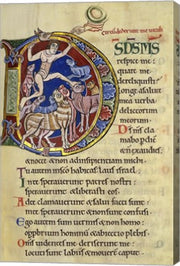 DS DS MS
respice me
quare me
dereliquisti
longe a salute
mea verba
delictorum
meorum
Ds ms cla
mabo p die
& non exaudies
& nocte & non ad insipientiam mihi
Tu autem in sco habitas laus israel
In te speraverunt patres nostri
speraverunt & liberasti eos
Ad te clamaverunt & salvi facti sunt in
te speraverunt & non sunt confusi
Ego autem sum vermis & non homo
opprobrium hominu & abiectio plebis
Omnes videntes me deriserunt me
locuti sunt labiis & moverunt caput